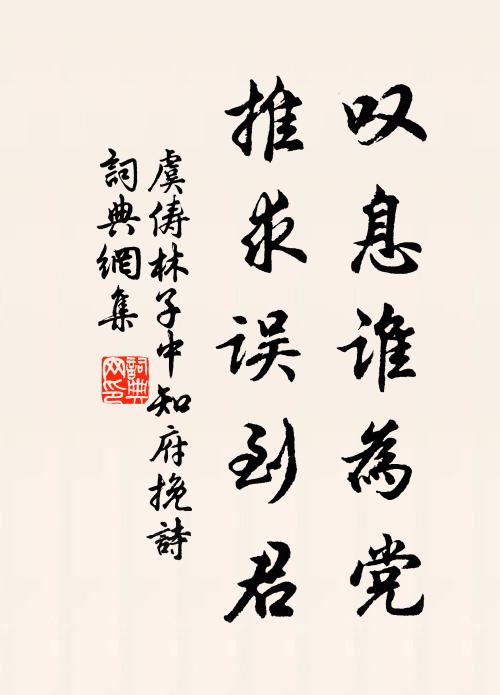 叹息谁為党
推求误到君
虞俦林子中知府挽詩
詞典網集
詞典网印